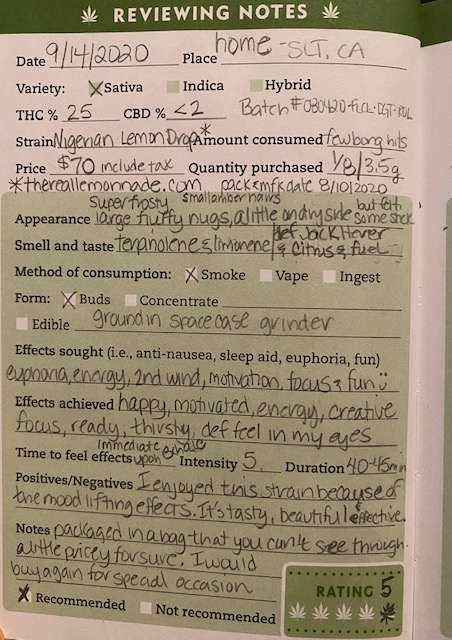 REVIEWING NOTES
Date 9/14/2020 Place home - SLT, CA
Variety: Sativa Indica Hybrid
THC % 25 CBD % <2 Batch #080420-FLCL-DGT-RDL
Strain Nigerian Lemon Drop* Amount consumed few bong hits
Price $70 include tax Quantity purchased 1/8/3.5g
*thereallemonnade.com pack & mfk date 8/10/2020
Super frosty small amber hairs
Appearance large fluffy nugs, a little on dry side but felt some stick
Smell and taste terpinolene & limonene def. Jack Herer & Citrus & fuel
Method of consumption: Smoke Vape Ingest
Form: Buds Concentrate
Edible ground in space case grinder
Effects sought (i.e., anti-nausea, sleep aid, euphoria, fun)
euphoria, energy, 2nd wind, motivation, focus & fun
Effects achieved happy, motivated, energy, creative
focus, ready, thirsty, def feel in my eyes
Time to feel effects immediate upon exhale Intensity 5 Duration 40-45min
Positives/Negatives I enjoyed this strain because of
the mood lifting effects. It's tasty, beautiful & effective.
Notes packaged in a bag that you can't see through.
a little pricey for sure. I would
buy again for special occasion
Recommended Not recommended
RATING 5